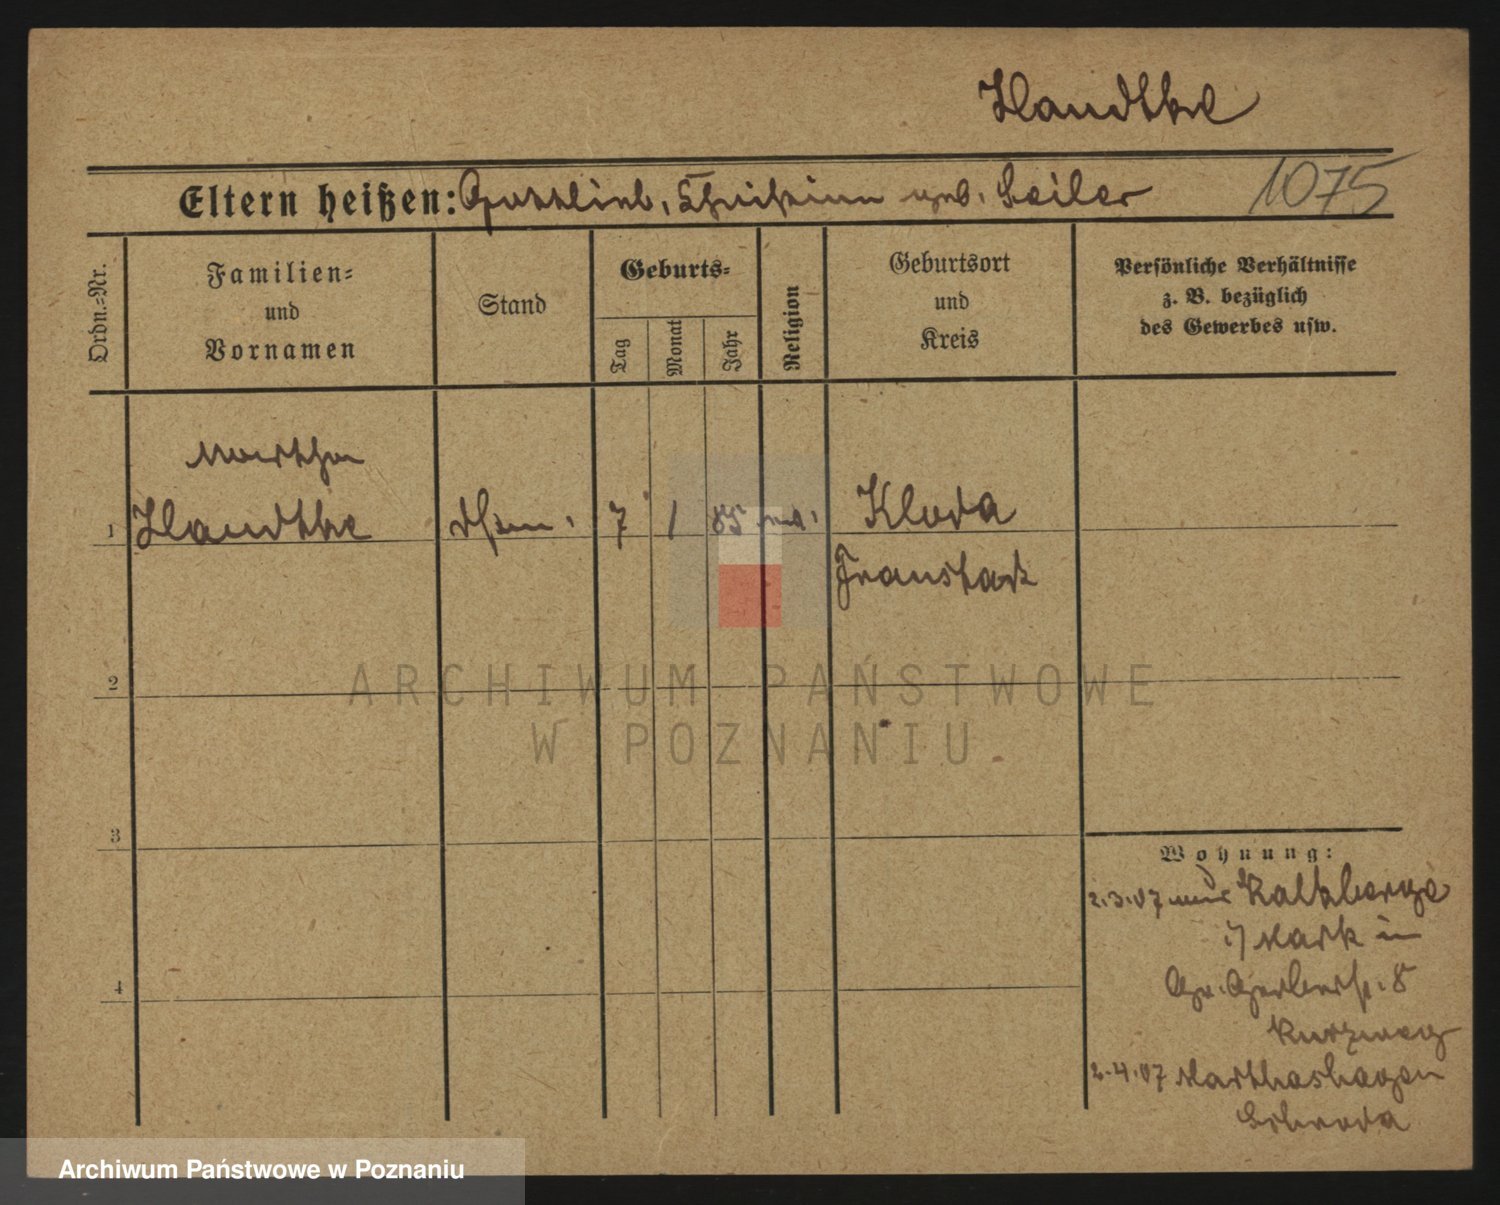 Handtke
Eltern heißen: Gottlieb, Christine geb. Seiler 1075
Ordn.=Nr.
Familien=
und
Vornamen
Stand
Geburts=
Tag
Monat
Jahr
Religion
Geburtsort
und
Kreis
Persönliche Verhältnisse
z. B. bezüglich
des Gewerbes usw.
Martha
1 Handtke 7 1 85 Kloda
Fraustadt
2
3
4
Wohnung:
2.3.07 Kalkberge
i/ Mark in
Gr. Gerberstr. 8
Kurzweg
2.4.07 Marthashagen
Schroda
ARCHIWUM PAŃSTWOWE
W POZNANIU
Archiwum Państwowe w Poznaniu